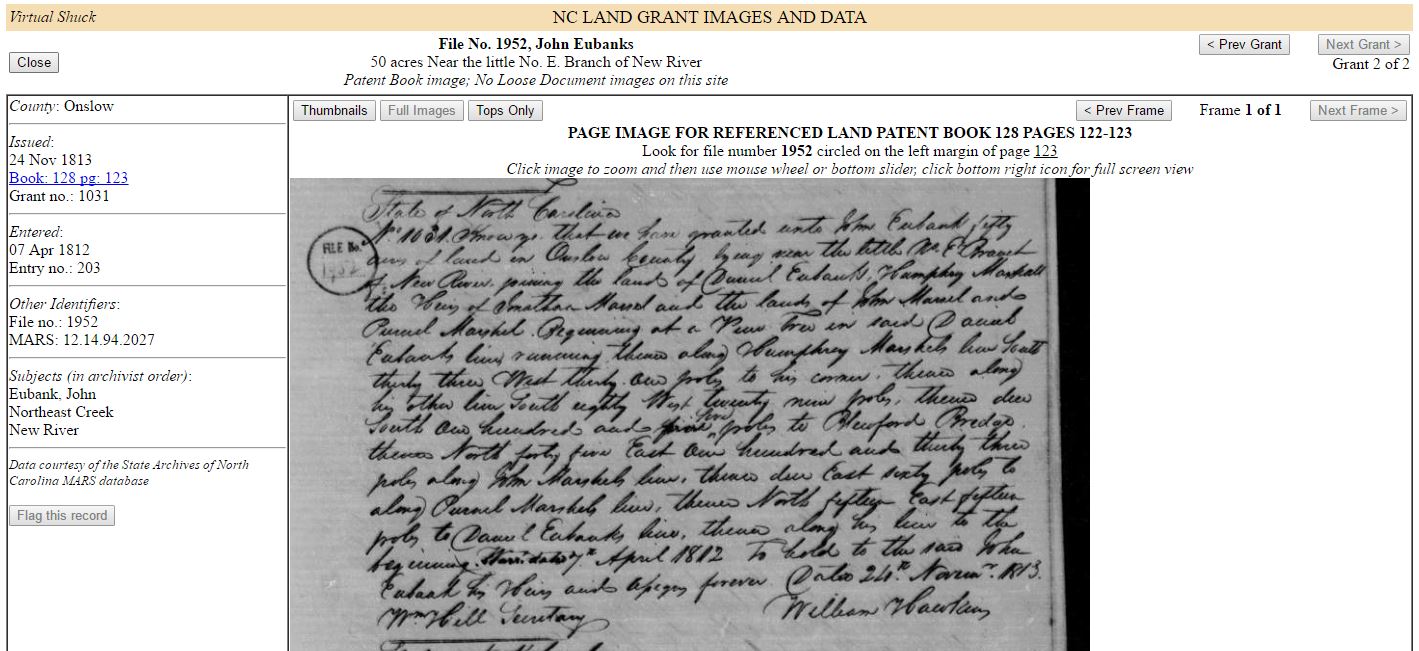 Virtual Shuck
NC LAND GRANT IMAGES AND DATA
Close
File No. 1952, John Eubanks
50 acres Near the little No. E. Branch of New River
Patent Book image; No Loose Document images on this site
< Prev Grant
Next Grant >
Grant 2 of 2
County: Onslow
Issued:
24 Nov 1813
Book: 128 pg: 123
Grant no.: 1031
Entered:
07 Apr 1812
Entry no.: 203
Other Identifiers:
File no.: 1952
MARS: 12.14.94.2027
Subjects (in archivist order):
Eubank, John
Northeast Creek
New River
Data courtesy of the State Archives of North
Carolina MARS database
Flag this record
Thumbnails
Full Images
Tops Only
< Prev Frame
Frame 1 of 1
Next Frame >
PAGE IMAGE FOR REFERENCED LAND PATENT BOOK 128 PAGES 122-123
Look for file number 1952 circled on the left margin of page 123
Click image to zoom and then use mouse wheel or bottom slider; click bottom right icon for full screen view
FILE No.
1952
State of North Carolina
No. 1031. Know ye that we have granted unto John Eubank fifty
acres of land in Onslow County lying near the little No. Et. Branch
of New River. joining the lands of Daniel Eubanks, Humphrey Marshall
the Heirs of Jonathan Marsel and the lands of John Marsel and
Purnel Marshel. Beginning at a Pine Tree in said Daniel
Eubanks line running thence along Humphrey Marshels line South
thirty three West thirty one poles to his corner, thence along
his other line South eighty West twenty nine poles, thence due
South one hundred and five poles to Blewford Bredge.
thence North forty five East one hundred and thirty three
poles along John Marshels line, thence due East sixty poles to
along Purnel Marshels line, thence North fifteen East fifteen
poles to Daniel Eubanks line, thence along his line to the
beginning. 7th April 1812 To hold to the said John
Eubank his Heirs and assigns forever. Dated 24th Novemr. 1813.
Wm Hill Secretary
William Hawkins